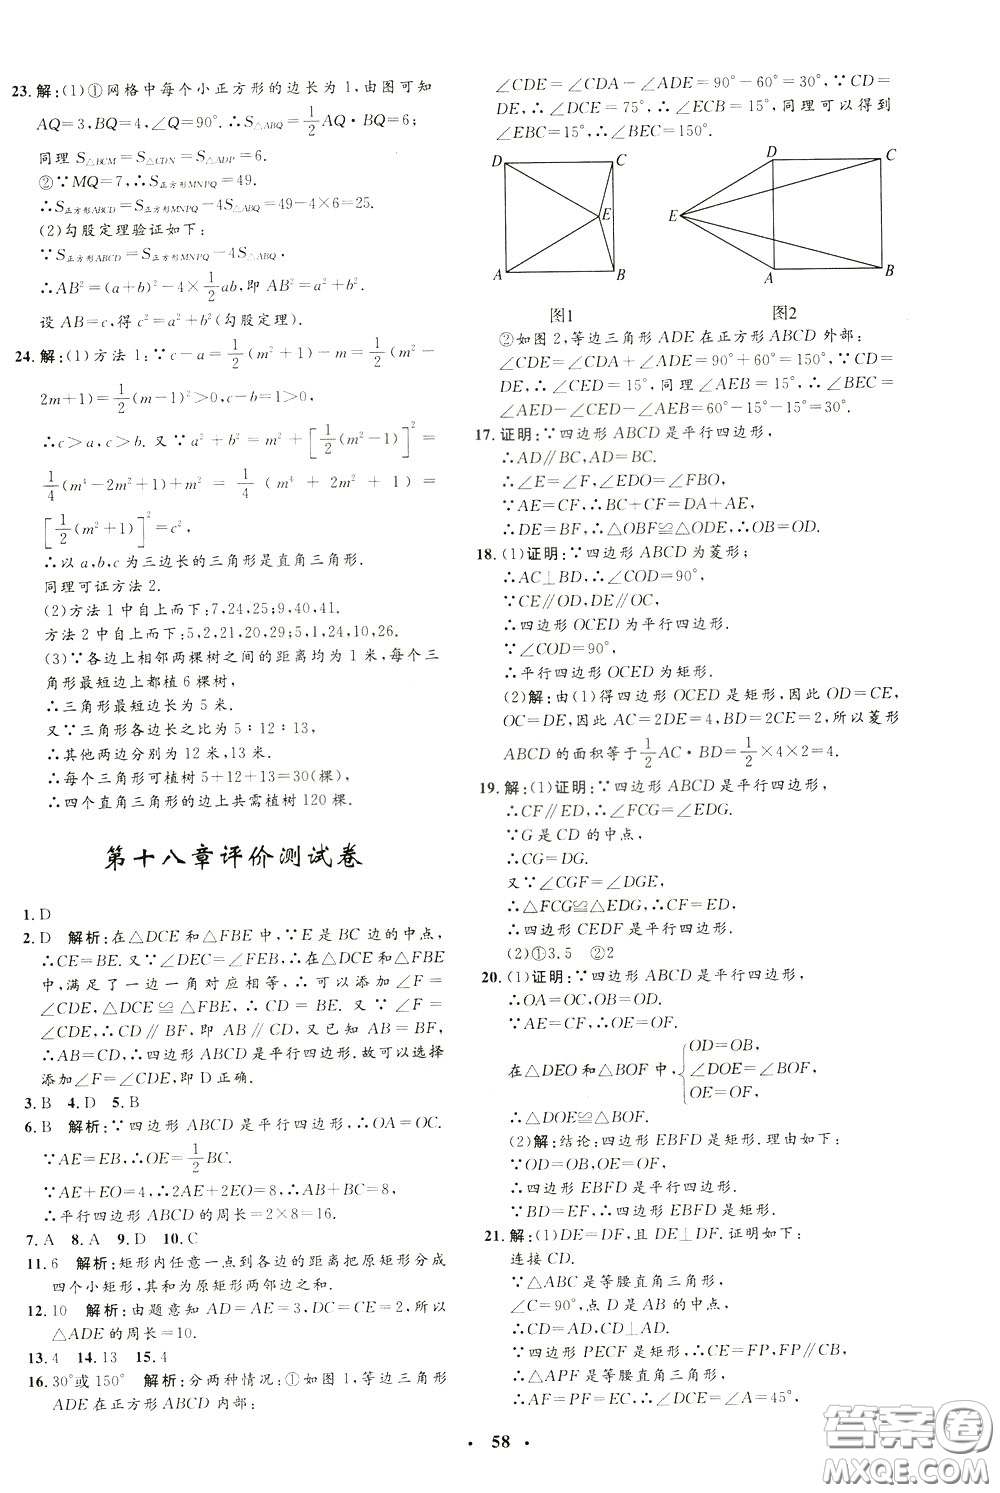 23.解:(1)①网格中每个小正方形的边长为1,由图可知
AQ=3,BQ=4,∠Q=90°.∴S△ABQ=1/2AQ·BQ=6;
同理S△BCM=S△CDN=S△ADP=6.
②∵MQ=7,∴S正方形MNPQ=49.
∴S正方形ABCD=S正方形MNPQ-4S△ABQ=49-4×6=25.
(2)勾股定理验证如下:
∵S正方形ABCD=S正方形MNPQ-4S△ABQ,
∴AB²=(a+b)²-4×1/2ab,即AB²=a²+b².
设AB=c,得c²=a²+b²(勾股定理).
24.解:(1)方法1:∵c-a=1/2(m²+1)-m=1/2(m²-
2m+1)=1/2(m-1)²>0,c-b=1>0,
∴c>a,c>b.又∵a²+b²=m²+[1/2(m²-1)]²=
1/4(m⁴-2m²+1)+m²=1/4(m⁴+2m²+1)=
[1/2(m²+1)]²=c²,
∴以a,b,c为三边长的三角形是直角三角形.
同理可证方法2.
(2)方法1中自上而下:7,24,25;9,40,41.
方法2中自上而下:5,2,21,20,29;5,1,24,10,26.
(3)∵各边上相邻两棵树之间的距离均为1米,每个三
角形最短边上都植6棵树,
∴三角形最短边长为5米.
又∵三角形各边长之比为5∶12∶13,
∴其他两边分别为12米,13米.
∴每个三角形可植树5+12+13=30(棵).
∴四个直角三角形的边上共需植树120棵.
第十八章评价测试卷
1.D
2.D 解析:在△DCE和△FBE中,∵E是BC边的中点,
∴CE=BE.又∵∠DEC=∠FEB,∴在△DCE和△FBE
中,满足了一边一角对应相等,∴可以添加∠F=
∠CDE,△DCE≌△FBE,∴CD=BF.又∵∠F=
∠CDE,∴CD∥BF,即AB∥CD,又已知AB=BF,
∴AB=CD,∴四边形ABCD是平行四边形.故可以选择
添加∠F=∠CDE,即D正确.
3.B 4.D 5.B
6.B 解析:∵四边形ABCD是平行四边形,∴OA=OC.
∵AE=EB,∴OE=1/2BC.
∵AE+EO=4,∴2AE+2EO=8,∴AB+BC=8,
∴平行四边形ABCD的周长=2×8=16.
7.A 8.A 9.D 10.C
11.6 解析:矩形内任意一点到各边的距离把原矩形分成
四个小矩形,其和为原矩形两邻边之和.
12.10 解析:由题意知AD=AE=3,DC=CE=2,所以
△ADE的周长=10.
13.4 14.13 15.4
16.30°或150° 解析:分两种情况:①如图1,等边三角形
ADE在正方形ABCD内部:
∠CDE=∠CDA-∠ADE=90°-60°=30°,∵CD=
DE,∴∠DCE=75°,∴∠ECB=15°,同理可以得到
∠EBC=15°,∴∠BEC=150°.
D C E A B
D C E A B
图1 图2
②如图2,等边三角形ADE在正方形ABCD外部:
∠CDE=∠CDA+∠ADE=90°+60°=150°,∵CD=
DE,∴∠CED=15°,同理∠AEB=15°,∴∠BEC=
∠AED-∠CED-∠AEB=60°-15°-15°=30°.
17.证明:∵四边形ABCD是平行四边形,
∴AD∥BC,AD=BC.
∴∠E=∠F,∠EDO=∠FBO,
∵AE=CF,∴BC+CF=DA+AE,
∴DE=BF,∴△OBF≌△ODE,∴OB=OD.
18.(1)证明:∵四边形ABCD为菱形;
∴AC⊥BD,∴∠COD=90°,
∵CE∥OD,DE∥OC,
∴四边形OCED为平行四边形.
∵∠COD=90°,
∴平行四边形OCED为矩形.
(2)解:由(1)得四边形OCED是矩形,因此OD=CE,
OC=DE,因此AC=2DE=4,BD=2CE=2,所以菱形
ABCD的面积等于1/2AC·BD=1/2×4×2=4.
19.解:(1)证明:∵四边形ABCD是平行四边形,
∴CF∥ED,∴∠FCG=∠EDG.
∵G是CD的中点,
∴CG=DG.
又∵∠CGF=∠DGE,
∴△FCG≌△EDG,∴CF=ED,
∴四边形CEDF是平行四边形.
(2)①3.5 ②2
20.(1)证明:∵四边形ABCD是平行四边形,
∴OA=OC,OB=OD.
∵AE=CF,∴OE=OF.
在△DEO和△BOF中,{OD=OB,
∠DOE=∠BOF,
OE=OF.
∴△DOE≌△BOF.
(2)解:结论:四边形EBFD是矩形.理由如下:
∵OD=OB,OE=OF,
∴四边形EBFD是平行四边形.
∵BD=EF,∴四边形EBFD是矩形.
21.解:(1)DE=DF,且DE⊥DF.证明如下:
连接CD.
∵△ABC是等腰直角三角形,
∠C=90°,点D是AB的中点,
∴CD=AD,CD⊥AD.
∵四边形PECF是矩形,∴CE=FP,FP∥CB,
∴△APF是等腰直角三角形,
∴AF=PF=EC,∴∠DCE=∠A=45°,
• 58 •
答案圈
MXQE.COM